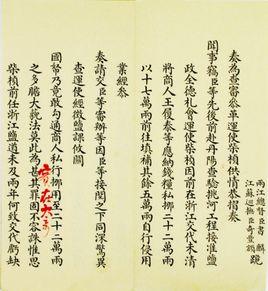 兩江總督臣書麟
江蘇巡撫臣奇豐額跪
奏為查審參革運使柴楨供情恭摺奏
聞事竊臣等先後前赴丹陽查驗挑河工程接准鹽
政全德札會運使柴楨因前在浙江交代未清
將商人王履泰等應納錢糧私那二十二萬兩
以十七萬兩前往填補其餘五萬兩自行侵用
業經參
奏請交臣等審辦等因臣等接閱之下同深驚異
查運使經徵鹽課攸關
國帑乃竟敢勾通商人私行挪用至二十二萬兩
之多膽大藐法莫此為甚其罪固不容誅惟思
實在大奇
柴楨前任浙江鹽道未及兩年何致交代虧缺